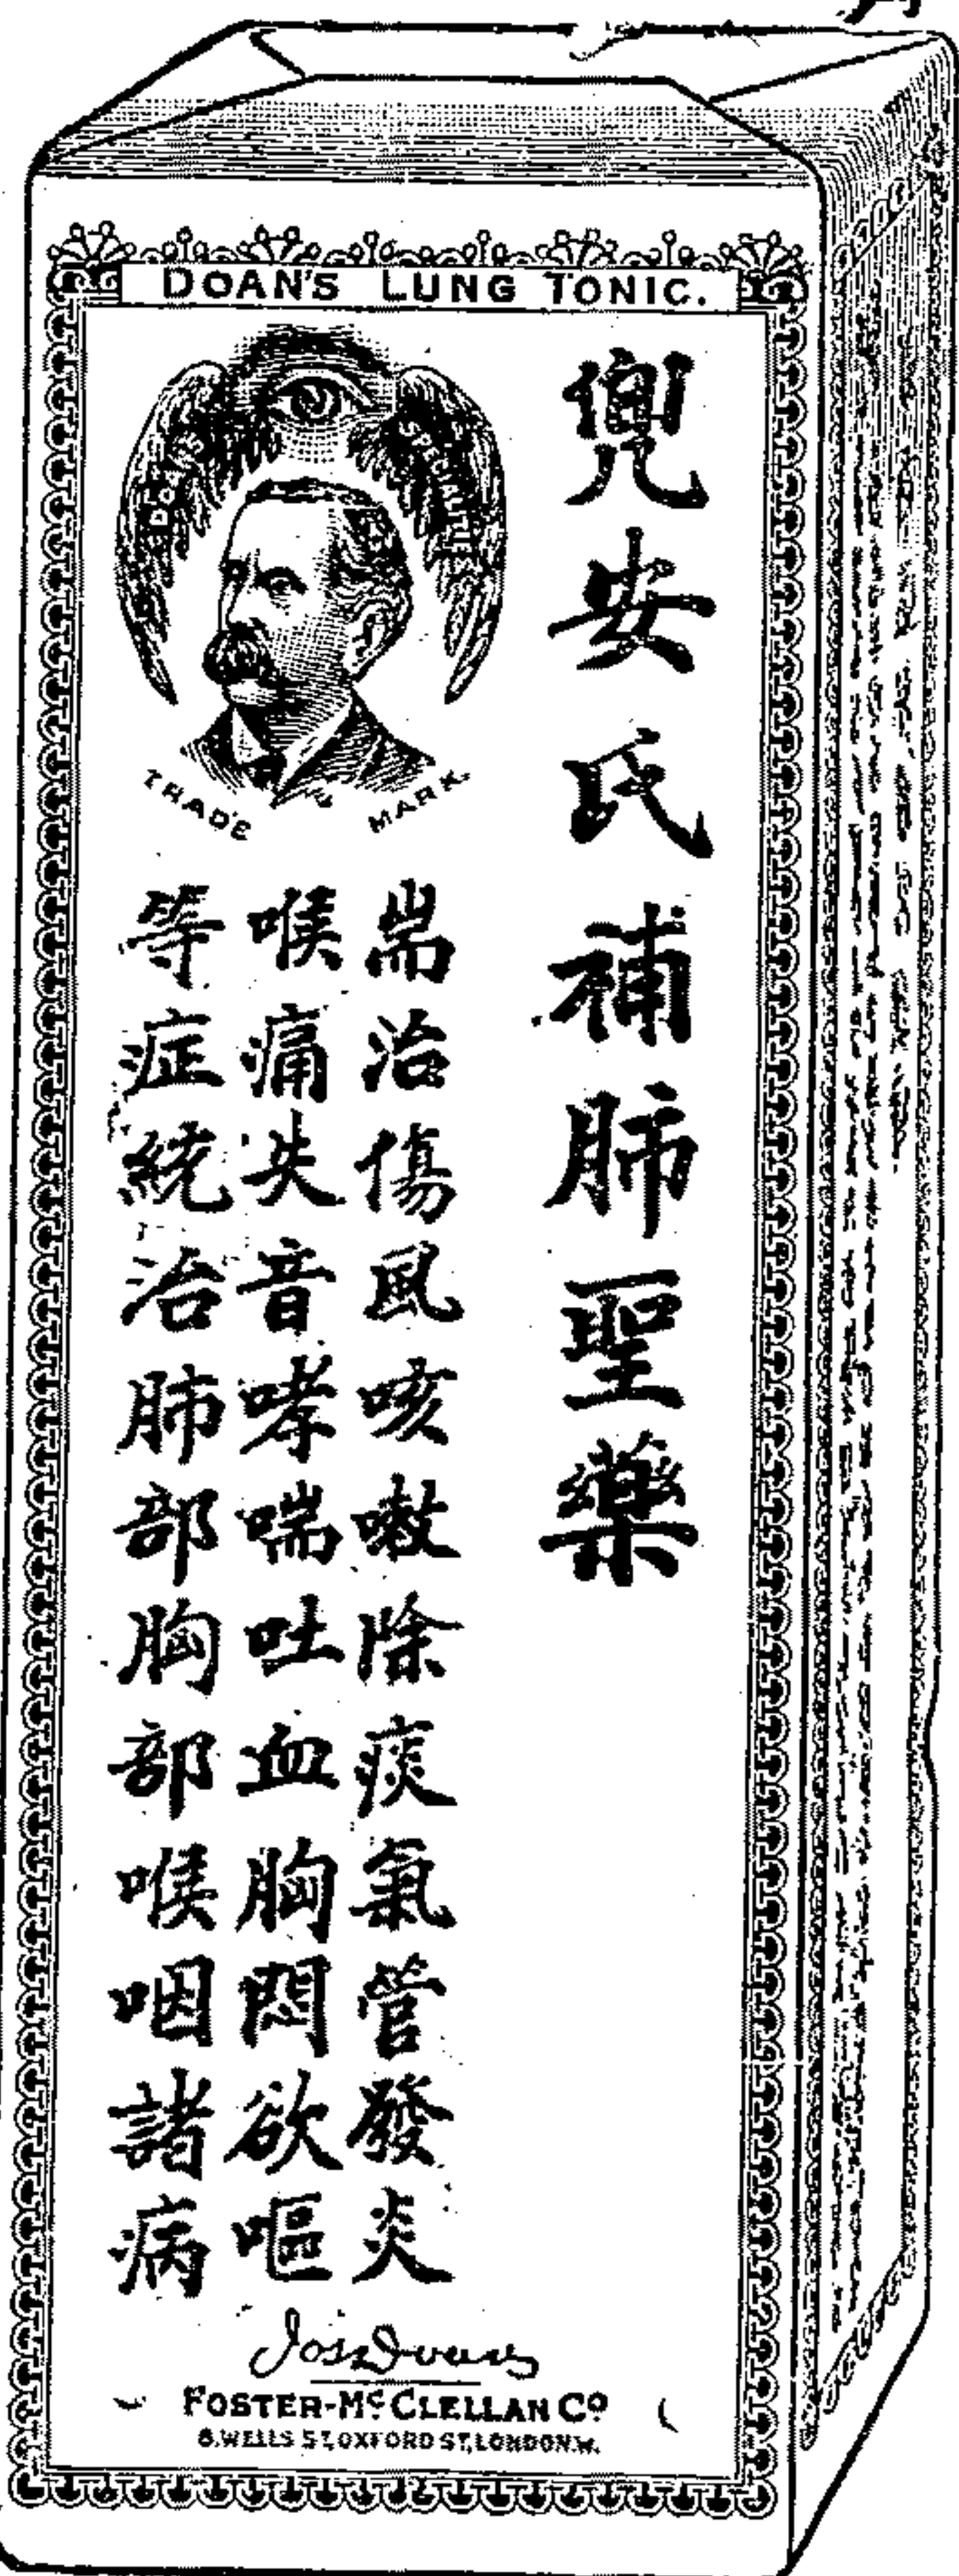 DOAN'S LUNG TONIC.
兜安氏補肺聖藥
TRADE MARK
耑治傷風咳嗽除痰氣管發炎
喉痛失音哮喘吐血胸悶欲嘔
等症統治肺部胸部喉咽諸病
Jos Doan
FOSTER-McCLELLAN Co
8, WELLS ST, OXFORD ST, LONDON.W.